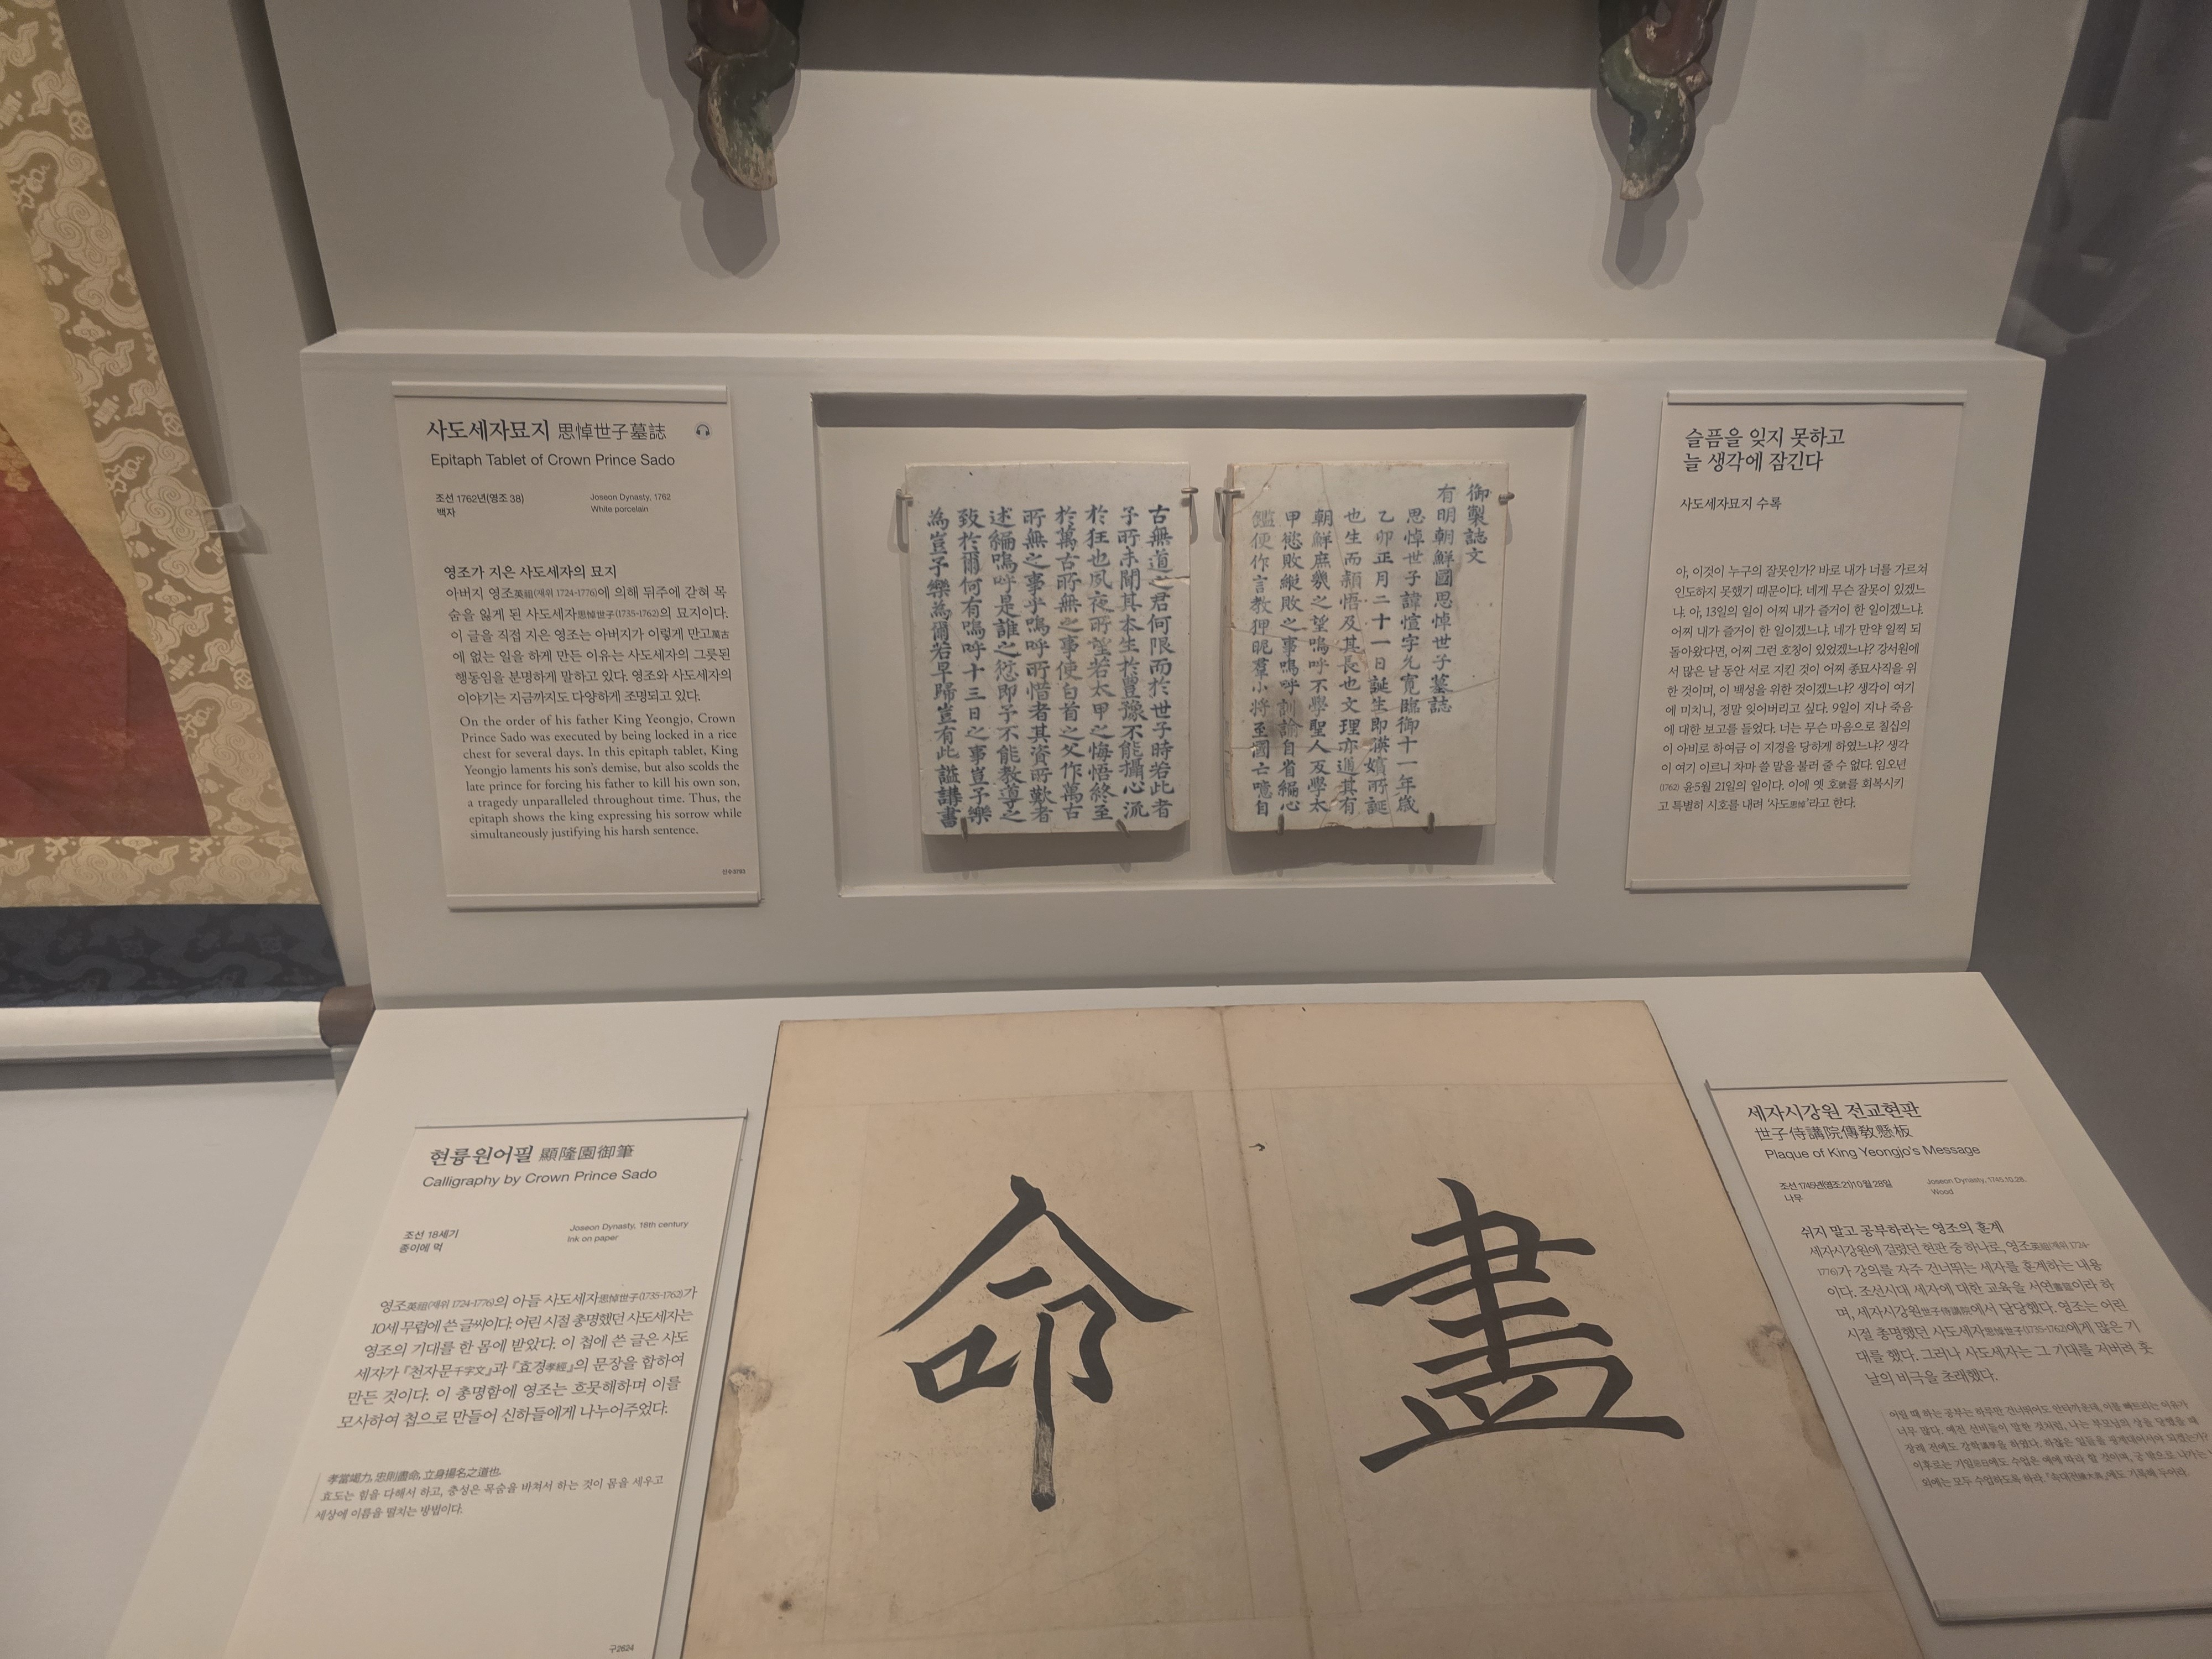 사도세자묘지 思悼世子墓誌
Epitaph Tablet of Crown Prince Sado
조선 1762년(영조 38)
백자
Joseon Dynasty, 1762
White porcelain
영조가 지은 사도세자의 묘지
아버지 영조英祖(재위 1724-1776)에 의해 뒤주에 갇혀 목
숨을 잃게 된 사도세자思悼世子(1735-1762)의 묘지이다.
이 글을 직접 지은 영조는 아버지가 이렇게 만고萬古
에 없는 일을 하게 만든 이유는 사도세자의 그릇된
행동임을 분명하게 말하고 있다. 영조와 사도세자의
이야기는 지금까지도 다양하게 조명되고 있다.
On the order of his father King Yeongjo, Crown
Prince Sado was executed by being locked in a rice
chest for several days. In this epitaph tablet, King
Yeongjo laments his son's demise, but also scolds the
late prince for forcing his father to kill his own son,
a tragedy unparalleled throughout time. Thus, the
epitaph shows the king expressing his sorrow while
simultaneously justifying his harsh sentence.
御製誌文
有明朝鮮國思悼世子墓誌
思悼世子諱愃字允寬臨御十一年歲
乙卯正月二十一日誕生即暎嬪所誕
也生而穎悟及其長也文理亦通其有
朝鮮庶幾之望嗚呼不學聖人反學太
甲慾敗縱敗之事嗚呼訓諭自省編心
鑑便作言教狎昵羣小將至國亡噫自
古無道之君何限而於世子時若此者
予所未聞其本生於豊豫不能攝心流
於狂也夙夜所望若太甲之悔悟終至
於萬古所無之事使白首之父作萬古
所無之事乎嗚呼所惜者其資所歎者
述編嗚呼是誰之愆即予不能教導之
致於爾何有嗚呼十三日之事豈予樂
為豈予樂為爾若早歸豈有此謚講書
슬픔을 잊지 못하고
늘 생각에 잠긴다
사도세자묘지 수록
아, 이것이 누구의 잘못인가? 바로 내가 너를 가르쳐
인도하지 못했기 때문이다. 네게 무슨 잘못이 있겠느
냐. 아, 13일의 일이 어찌 내가 즐거이 한 일이겠느냐.
어찌 내가 즐거이 한 일이겠느냐. 네가 만약 일찍 되
돌아왔다면, 어찌 그런 호칭이 있었겠느냐? 강서원에
서 많은 날 동안 서로 지킨 것이 어찌 종묘사직을 위
한 것이며, 이 백성을 위한 것이겠느냐? 생각이 여기
에 미치니, 정말 잊어버리고 싶다. 9일이 지나 죽음
에 대한 보고를 들었다. 너는 무슨 마음으로 칠십의
이 아비로 하여금 이 지경을 당하게 하였느냐? 생각
이 여기 이르니 차마 쓸 말을 불러 줄 수 없다. 임오년
(1762) 윤5월 21일의 일이다. 이에 옛 호號를 회복시키
고 특별히 시호를 내려 '사도思悼'라고 한다.
현륭원어필 顯隆園御筆
Calligraphy by Crown Prince Sado
조선 18세기
종이에 먹
Joseon Dynasty, 18th century
Ink on paper
영조英祖(재위 1724-1776)의 아들 사도세자思悼世子(1735-1762)가
10세 무렵에 쓴 글씨이다. 어린 시절 총명했던 사도세자는
영조의 기대를 한 몸에 받았다. 이 첩에 쓴 글은 사도
세자가 『천자문千字文』과 『효경孝經』의 문장을 합하여
만든 것이다. 이 총명함에 영조는 흐뭇해하며 이를
모사하여 첩으로 만들어 신하들에게 나누어주었다.
孝當竭力, 忠則盡命, 立身揚名之道也.
효도는 힘을 다해서 하고, 충성은 목숨을 바쳐서 하는 것이 몸을 세우고
세상에 이름을 떨치는 방법이다.
구2624
盡
命
세자시강원 전교현판
世子侍講院傳教懸板
Plaque of King Yeongjo's Message
조선 1745년(영조 21)10월 28일
나무
Joseon Dynasty, 1745.10.28.
Wood
쉬지 말고 공부하라는 영조의 훈계
세자시강원에 걸렸던 현판 중 하나로, 영조英祖(재위 1724-
1776)가 강의를 자주 건너뛰는 세자를 훈계하는 내용
이다. 조선시대 세자에 대한 교육을 서연書筵이라 하
며, 세자시강원世子侍講院에서 담당했다. 영조는 어린
시절 총명했던 사도세자思悼世子(1735-1762)에게 많은 기
대를 했다. 그러나 사도세자는 그 기대를 저버려 훗
날의 비극을 초래했다.
어릴 때 하는 공부는 하루만 건너뛰어도 안타까운데, 이를 빠트리는 이유가
너무 많다. 예전 선비들이 말한 것처럼, 나는 부모님의 상을 당했을 때
장례 전에도 강학講學을 하였다. 하찮은 일들을 핑계대어서야 되겠는가?